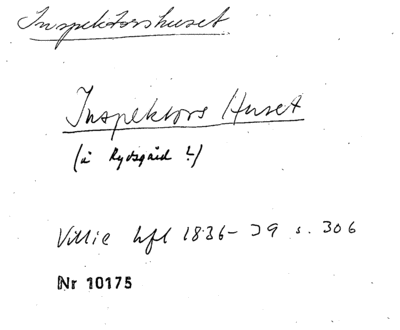 Inspektorshuset
Inspektors Huset
(å Rydsgård ?)
Villie hfl 1836-39 s. 306
Nr 10175